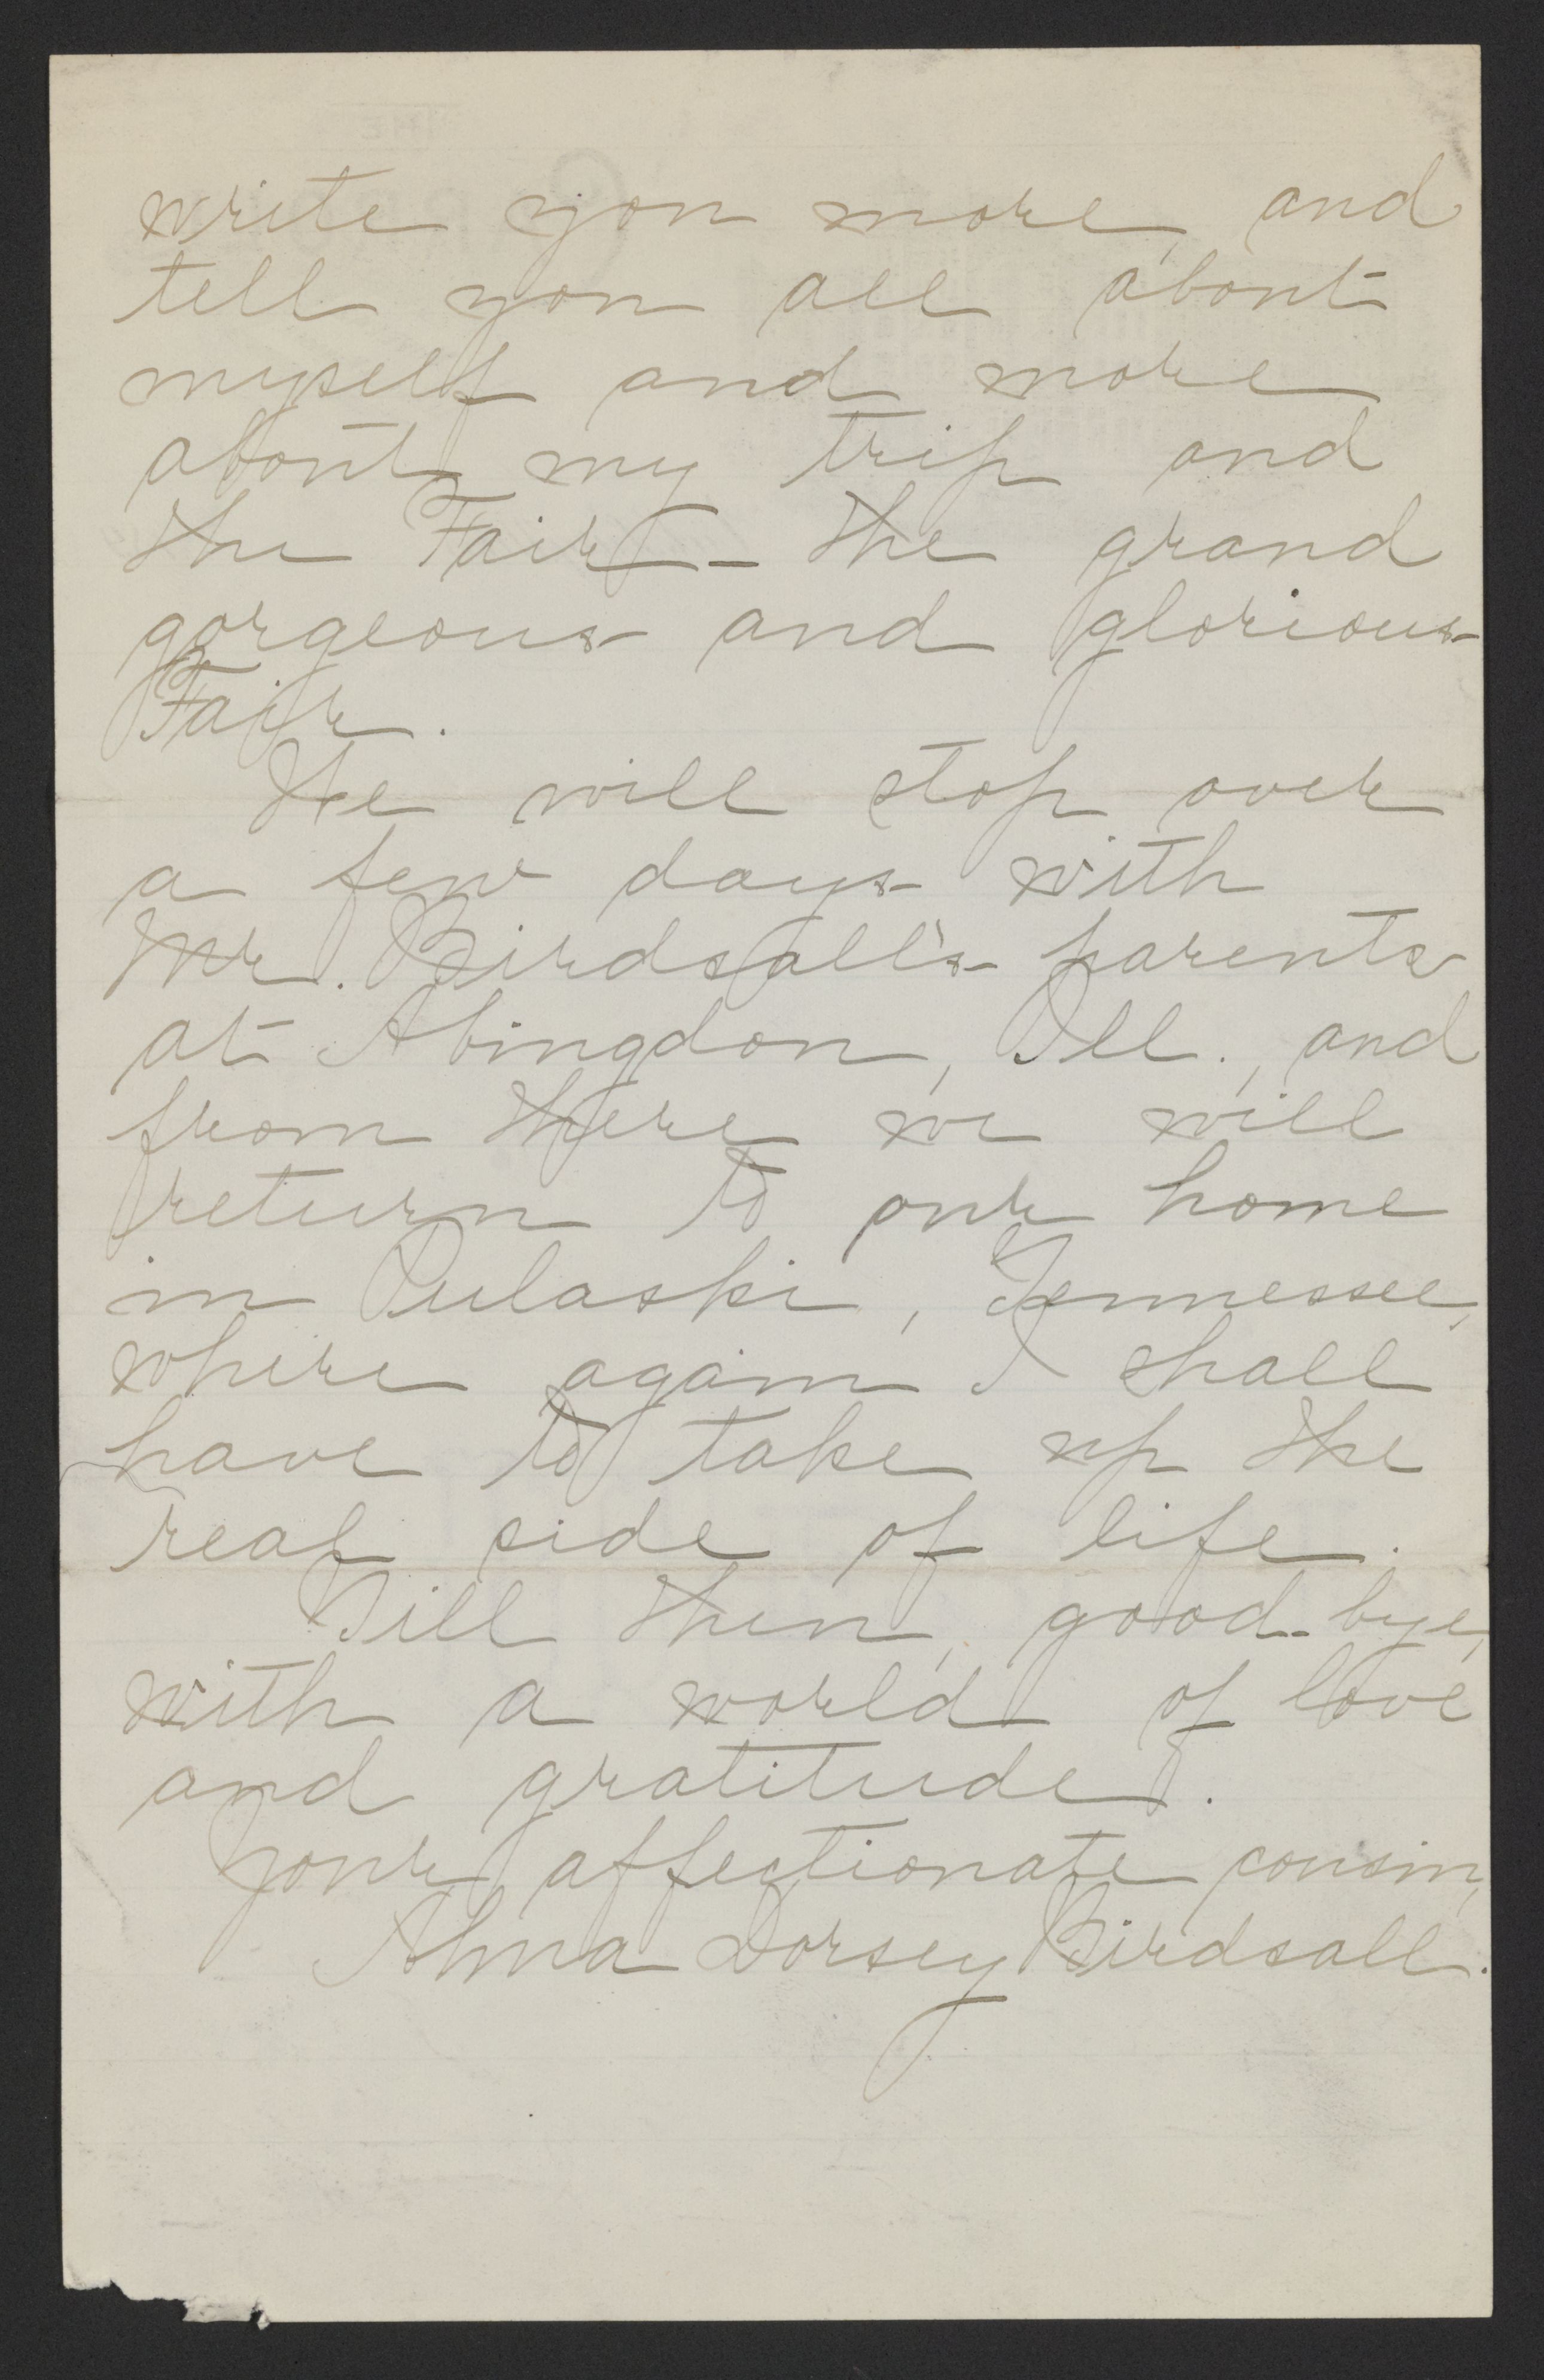 write you more, and
tell you all about
myself and more
about my trip and
the Fair - the grand
gorgeous and glorious
Fair.
We will stop over
a few days with
Mr. Birdsall's parents
at Abingdon, Ill., and
from there we will
return to our home
in Pulaski, Tennessee,
where again I shall
have to take up the
real side of life.
Till then, good-bye,
with a world of love
and gratitude.
Your affectionate cousin,
Alma Dorsey Birdsall.